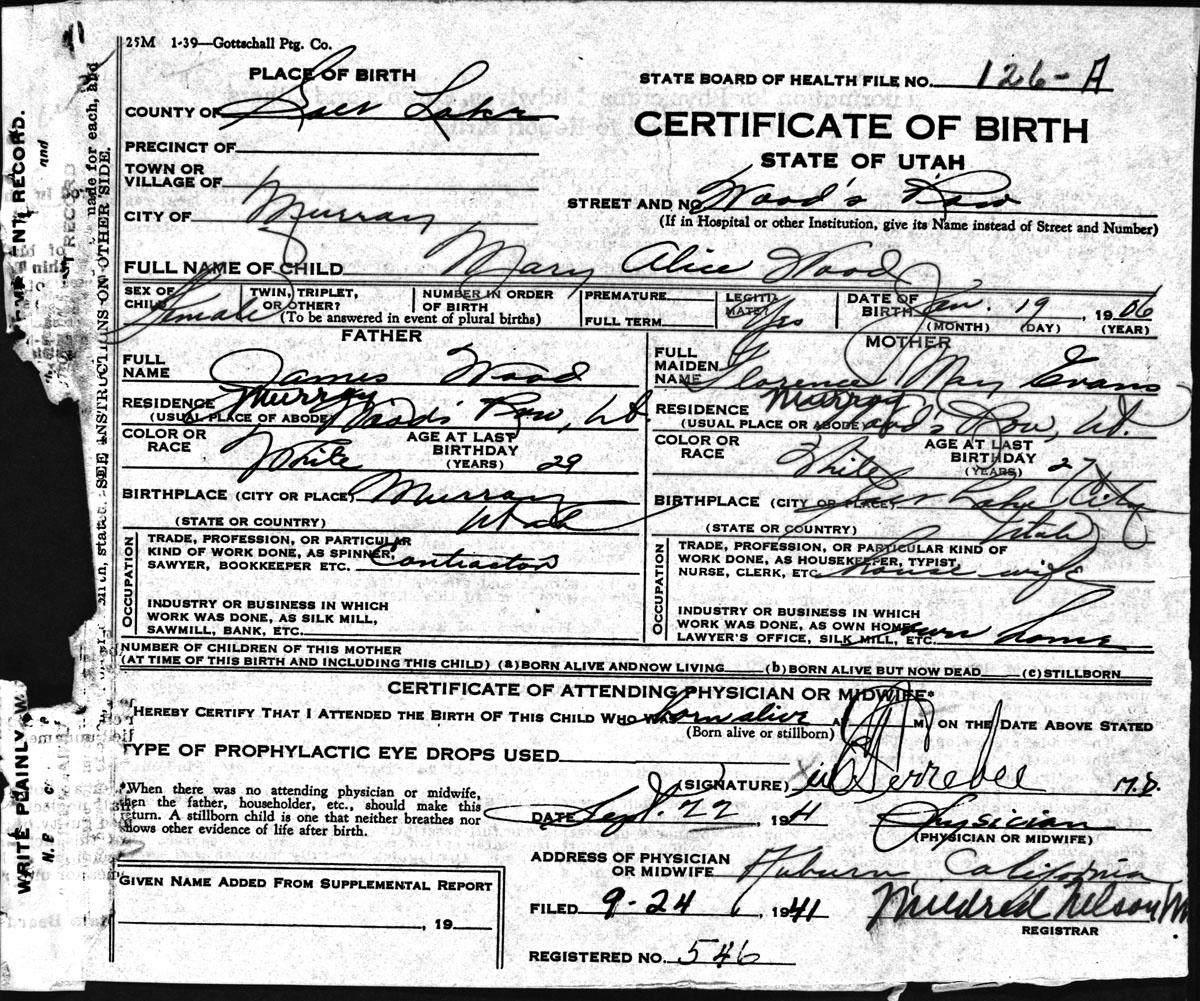 25M 1-39—Gottschall Ptg. Co.
PLACE OF BIRTH
STATE BOARD OF HEALTH FILE NO. 126-A
COUNTY OF Salt Lake
CERTIFICATE OF BIRTH
PRECINCT OF
STATE OF UTAH
TOWN OR
VILLAGE OF
STREET AND NO. Wood's Row
CITY OF Murray
(If in Hospital or other Institution, give its Name instead of Street and Number)
FULL NAME OF CHILD Mary Alice Wood
SEX OF CHILD Female
TWIN, TRIPLET, OR OTHER?
NUMBER IN ORDER OF BIRTH
(To be answered in event of plural births)
PREMATURE
FULL TERM
LEGITIMATE? Yes
DATE OF BIRTH Jan. 19, 1906
(MONTH) (DAY) (YEAR)
FATHER
FULL NAME James Wood
RESIDENCE Murray
(USUAL PLACE OF ABODE) Wood's Row, Ut.
COLOR OR RACE White
AGE AT LAST BIRTHDAY (YEARS) 29
BIRTHPLACE (CITY OR PLACE) Murray
(STATE OR COUNTRY) Utah
OCCUPATION
TRADE, PROFESSION, OR PARTICULAR
KIND OF WORK DONE, AS SPINNER,
SAWYER, BOOKKEEPER ETC. Contractor
INDUSTRY OR BUSINESS IN WHICH
WORK WAS DONE, AS SILK MILL,
SAWMILL, BANK, ETC.
MOTHER
FULL MAIDEN NAME Florence May Evans
RESIDENCE Murray
(USUAL PLACE OR ABODE) Wood's Row, Ut.
COLOR OR RACE White
AGE AT LAST BIRTHDAY (YEARS) 27
BIRTHPLACE (CITY OR PLACE) Salt Lake City
(STATE OR COUNTRY) Utah
OCCUPATION
TRADE, PROFESSION, OR PARTICULAR KIND OF
WORK DONE, AS HOUSEKEEPER, TYPIST,
NURSE, CLERK, ETC. house wife
INDUSTRY OR BUSINESS IN WHICH
WORK WAS DONE, AS OWN HOME,
LAWYER'S OFFICE, SILK MILL, ETC. own home
NUMBER OF CHILDREN OF THIS MOTHER
(AT TIME OF THIS BIRTH AND INCLUDING THIS CHILD) (a) BORN ALIVE AND NOW LIVING (b) BORN ALIVE BUT NOW DEAD (c) STILLBORN
CERTIFICATE OF ATTENDING PHYSICIAN OR MIDWIFE*
I HEREBY CERTIFY THAT I ATTENDED THE BIRTH OF THIS CHILD WHO WAS born alive AT M. ON THE DATE ABOVE STATED
(Born alive or stillborn)
TYPE OF PROPHYLACTIC EYE DROPS USED
(SIGNATURE) Ferrebee M.D.
*When there was no attending physician or midwife,
then the father, householder, etc., should make this
return. A stillborn child is one that neither breathes nor
shows other evidence of life after birth.
DATE Sept. 22, 1941 Physician
(PHYSICIAN OR MIDWIFE)
ADDRESS OF PHYSICIAN
OR MIDWIFE Auburn, California
GIVEN NAME ADDED FROM SUPPLEMENTAL REPORT
, 19
FILED 9-24, 1941 Mildred Nelson
REGISTRAR
REGISTERED NO. 546
made for each, and
SEE INSTRUCTIONS ON OTHER SIDE.
WRITE PLAINLY, W
RECORD.